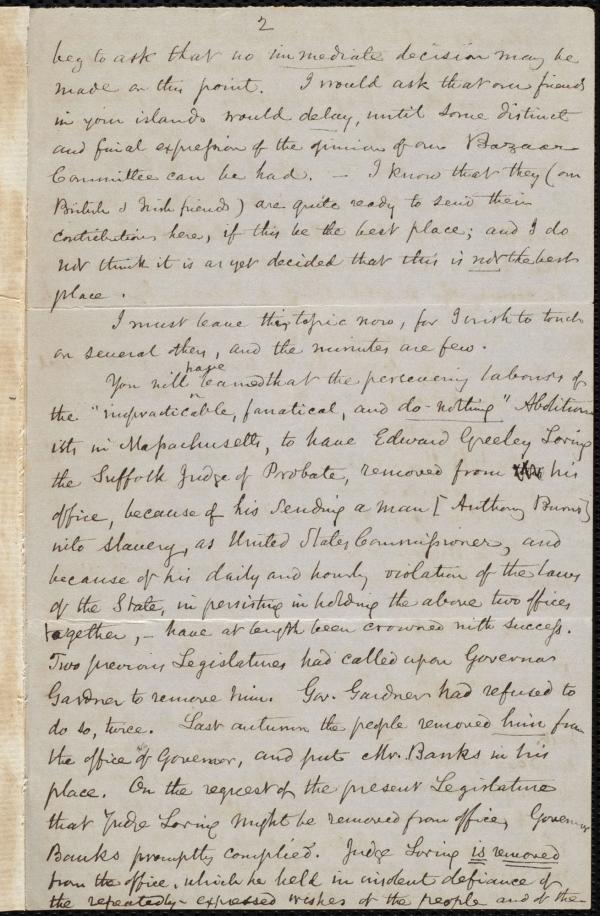 2
beg to ask that no immediate decision may be
made on this point. I would ask that our friends
in your islands would delay, until some distinct
and final expression of the opinion of our Bazaar
Committee can be had. — I know that they (our
British & Irish friends) are quite ready to send their
contributions here, if this be the best place; and I do
not think it is as yet decided that this is not the best
place.
I must leave this topic now, for I wish to touch
on several others, and the minutes are few.
You will have learned that the persevering labours of
the "impracticable, fanatical, and do-nothing" Abolition-
ists in Massachusetts, to have Edward Greeley Loring
the Suffolk Judge of Probate, removed from his
office, because of his sending a man [Anthony Burns]
into slavery, as United States Commissioner, and
because of his daily and hourly violation of the laws
of the State, in persisting in holding the above two offices
together, – have at length been crowned with success.
Two previous Legislatures had called upon Governor
Gardner to remove him. Gov. Gardner had refused to
do so, twice. Last autumn the people removed him from
the office of Governor, and put Mr. Banks in his
place. On the request of the present Legislature
that Judge Loring might be removed from office, Governor
Banks promptly complied. Judge Loring is removed
from the office, which he held in insolent defiance of
the repeatedly-expressed wishes of the people and of the